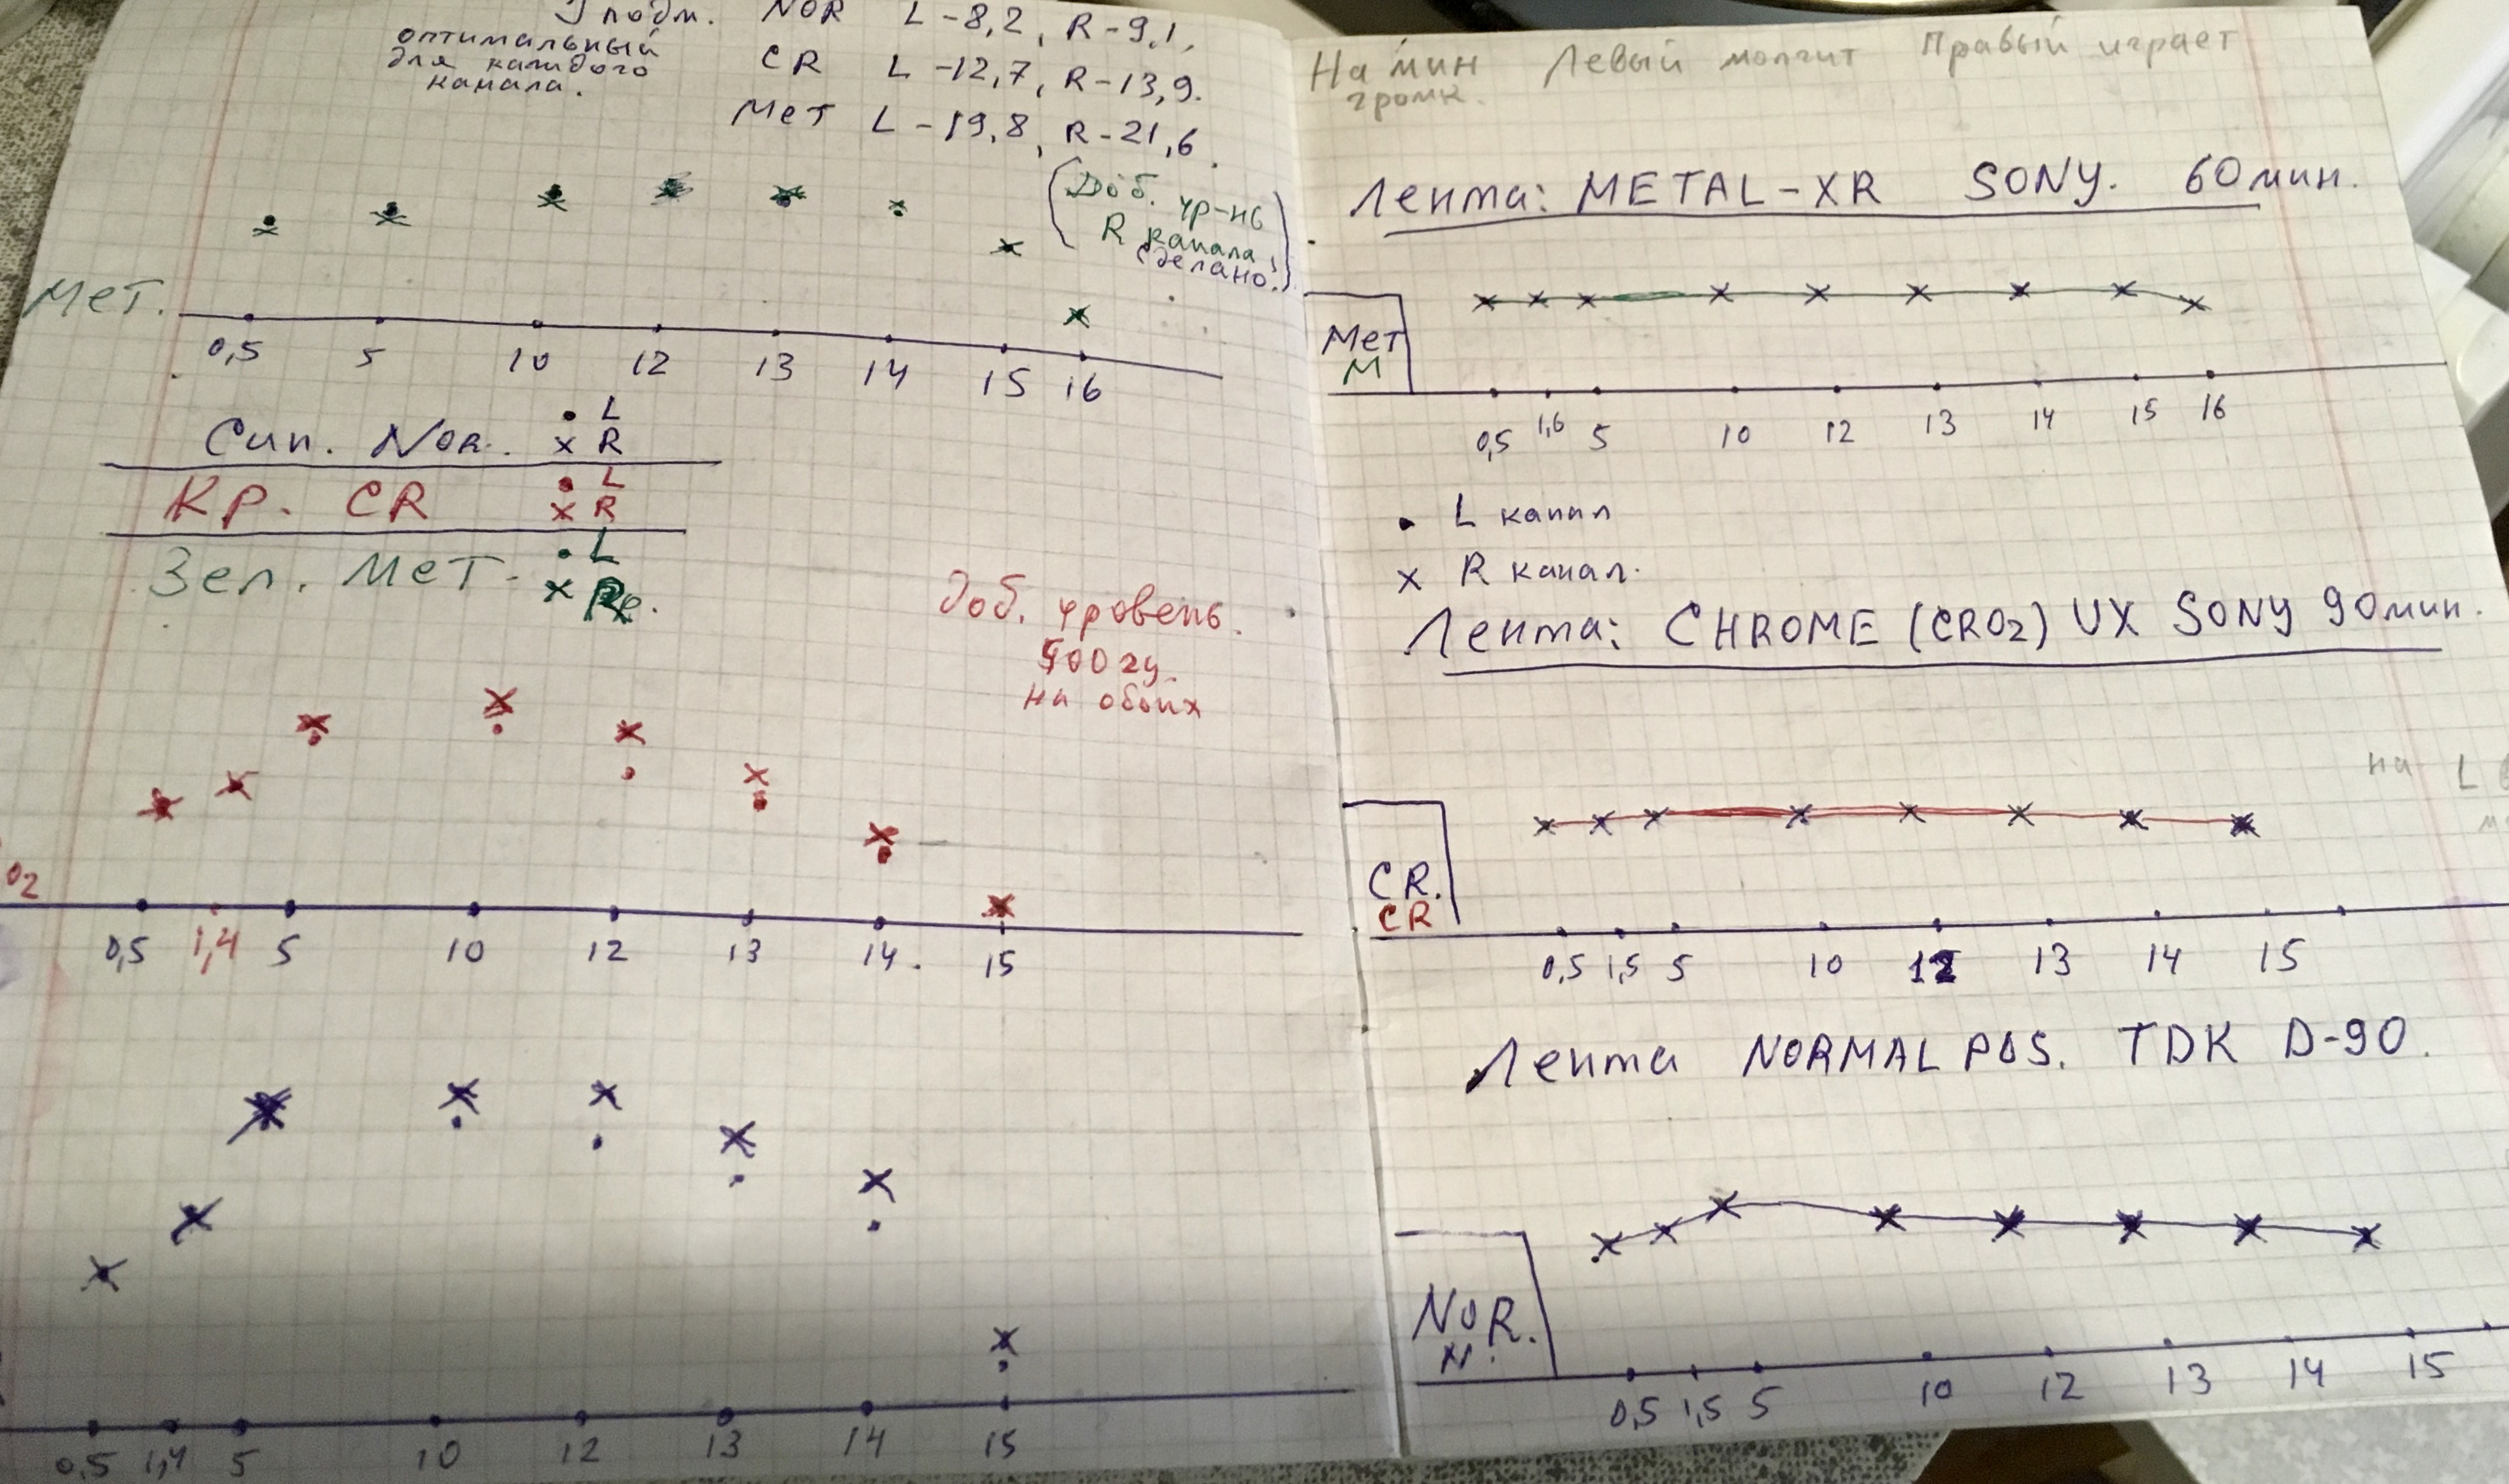 J подм. NOR L-8,2, R-9,1,
оптимальный
для каждого
канала.
CR L-12,7, R-13,9.
Мет L-19,8, R-21,6.
(Доб. ур-нь
R канала!
сделано!)
Мет.
0,5 5 10 12 13 14 15 16
Син. NOR. • L
x R
Кр. CR • L
x R
Зел. Мет. • L
x R
Доб. уровень.
500 гц.
на обоих
O2
0,5 1,4 5 10 12 13 14. 15
0,5 1,4 5 10 12 13 14 15
На мин Левый молчит Правый играет
громк.
Лента: METAL-XR SONY. 60 мин.
Мет
М
0,5 1,6 5 10 12 13 14 15 16
• L канал
x R канал.
Лента: CHROME (CRO2) UX SONY 90 мин.
на L
CR.
CR
0,5 1,5 5 10 12 13 14 15
Лента NORMAL POS. TDK D-90.
NOR.
N.
0,5 1,5 5 10 12 13 14 15